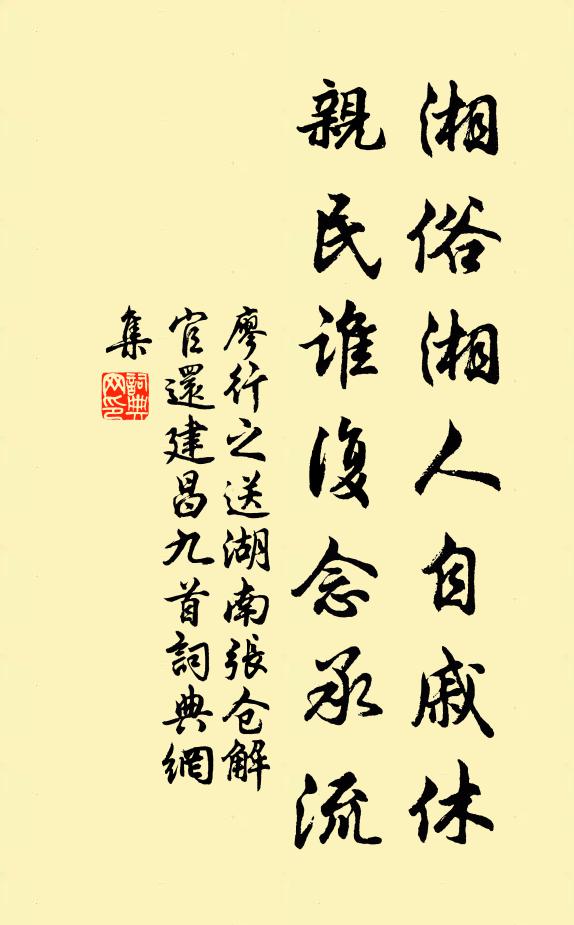 湘俗湘人自戚休
親民誰復念承流
廖行之送湖南張仓解
官還建昌九首詞典網
集
詞典
网印